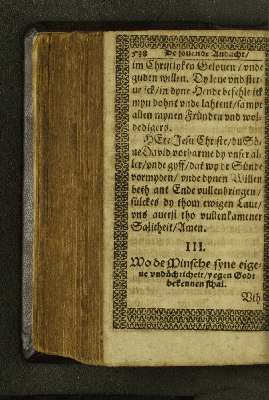 538 De sövende Andacht/
im Christlyken Gelouen / vnde
guden willen. Dy leue vnd ster-
ue ick/ in dyne Hende befehle ick
myn dohnt vnde lahtent/ sampt
allen mynen Fründen vnd wol-
dedigers.
HErr Jesu Christe/ du Sö-
ne David vorbarme dy vnser al-
ler/ vnde giff/ dat wy de Sünde
vormyden/ vnde dynen Willen
beth ant Ende vullenbringen/
sülckes dy thom ewigen Laue/
vns auerst tho vullenkamener
Salicheit/ Amen.
III.
Wo de Minsche syne eige-
ne vndüchticheit/ yegen Godt
bekennen schal.
Vth